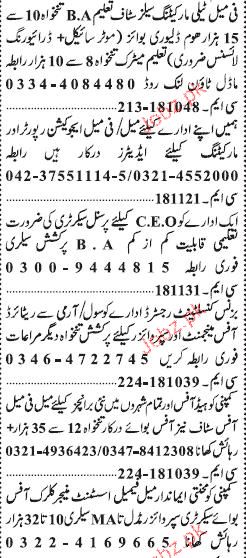 فی میل ٹیلی مارکیٹنگ سیلز سٹاف تعلیم B.A تنخواہ 10 سے
15 ہزار ہوم ڈلیوری بوائز (موٹر سائیکل + ڈرائیورنگ
لائسنس ضروری) تعلیم میٹرک تنخواہ 8 سے 10 ہزار رابطہ
ماڈل ٹاؤن لنک روڈ 0334-4084480
سی ایم۔ 213-181048
ہمیں اپنے ادارے کیلئے میل/فی میل ایجوکیشن رپورٹر اور
مارکیٹنگ کیلئے ایڈیٹرز درکار ہیں رابطہ
042-37551114-5/0321-4552000
سی ایم۔ 181121
ایک ادارے کو C.E.O کیلئے پرسنل سیکرٹری کی ضرورت
تعلیمی قابلیت کم از کم B.A پرکشش سیلری
فوری رابطہ 0300-9444815
سی ایم۔ 181131
بزنس کنسلٹنٹ رجسٹرڈ ادارے کو سول/آرمی سے ریٹائرڈ
آفس مینجمنٹ اور سپروائزر کیلئے پرکشش تنخواہ دیگر مراعات
فوری رابطہ کریں 0346-4722745
سی ایم۔ 224-181039
کمپنی کو ہیڈ آفس اور تمام شہروں میں نئی برانچز کیلئے میل فی میل
آفس سٹاف نیز آفس بوائے درکار تنخواہ 12 سے 35 ہزار+
رہائش کھانا 0321-4936423/0347-8412308
سی ایم۔ 224-181039
کمپنی کو محنتی ایماندار میل فیمیل اسسٹنٹ منیجر کلرک آفس
بوائے سیکرٹری سپروائزر مڈل تا MA سیلری 10 تا 32 ہزار
رہائش کھانا 0322-4169665